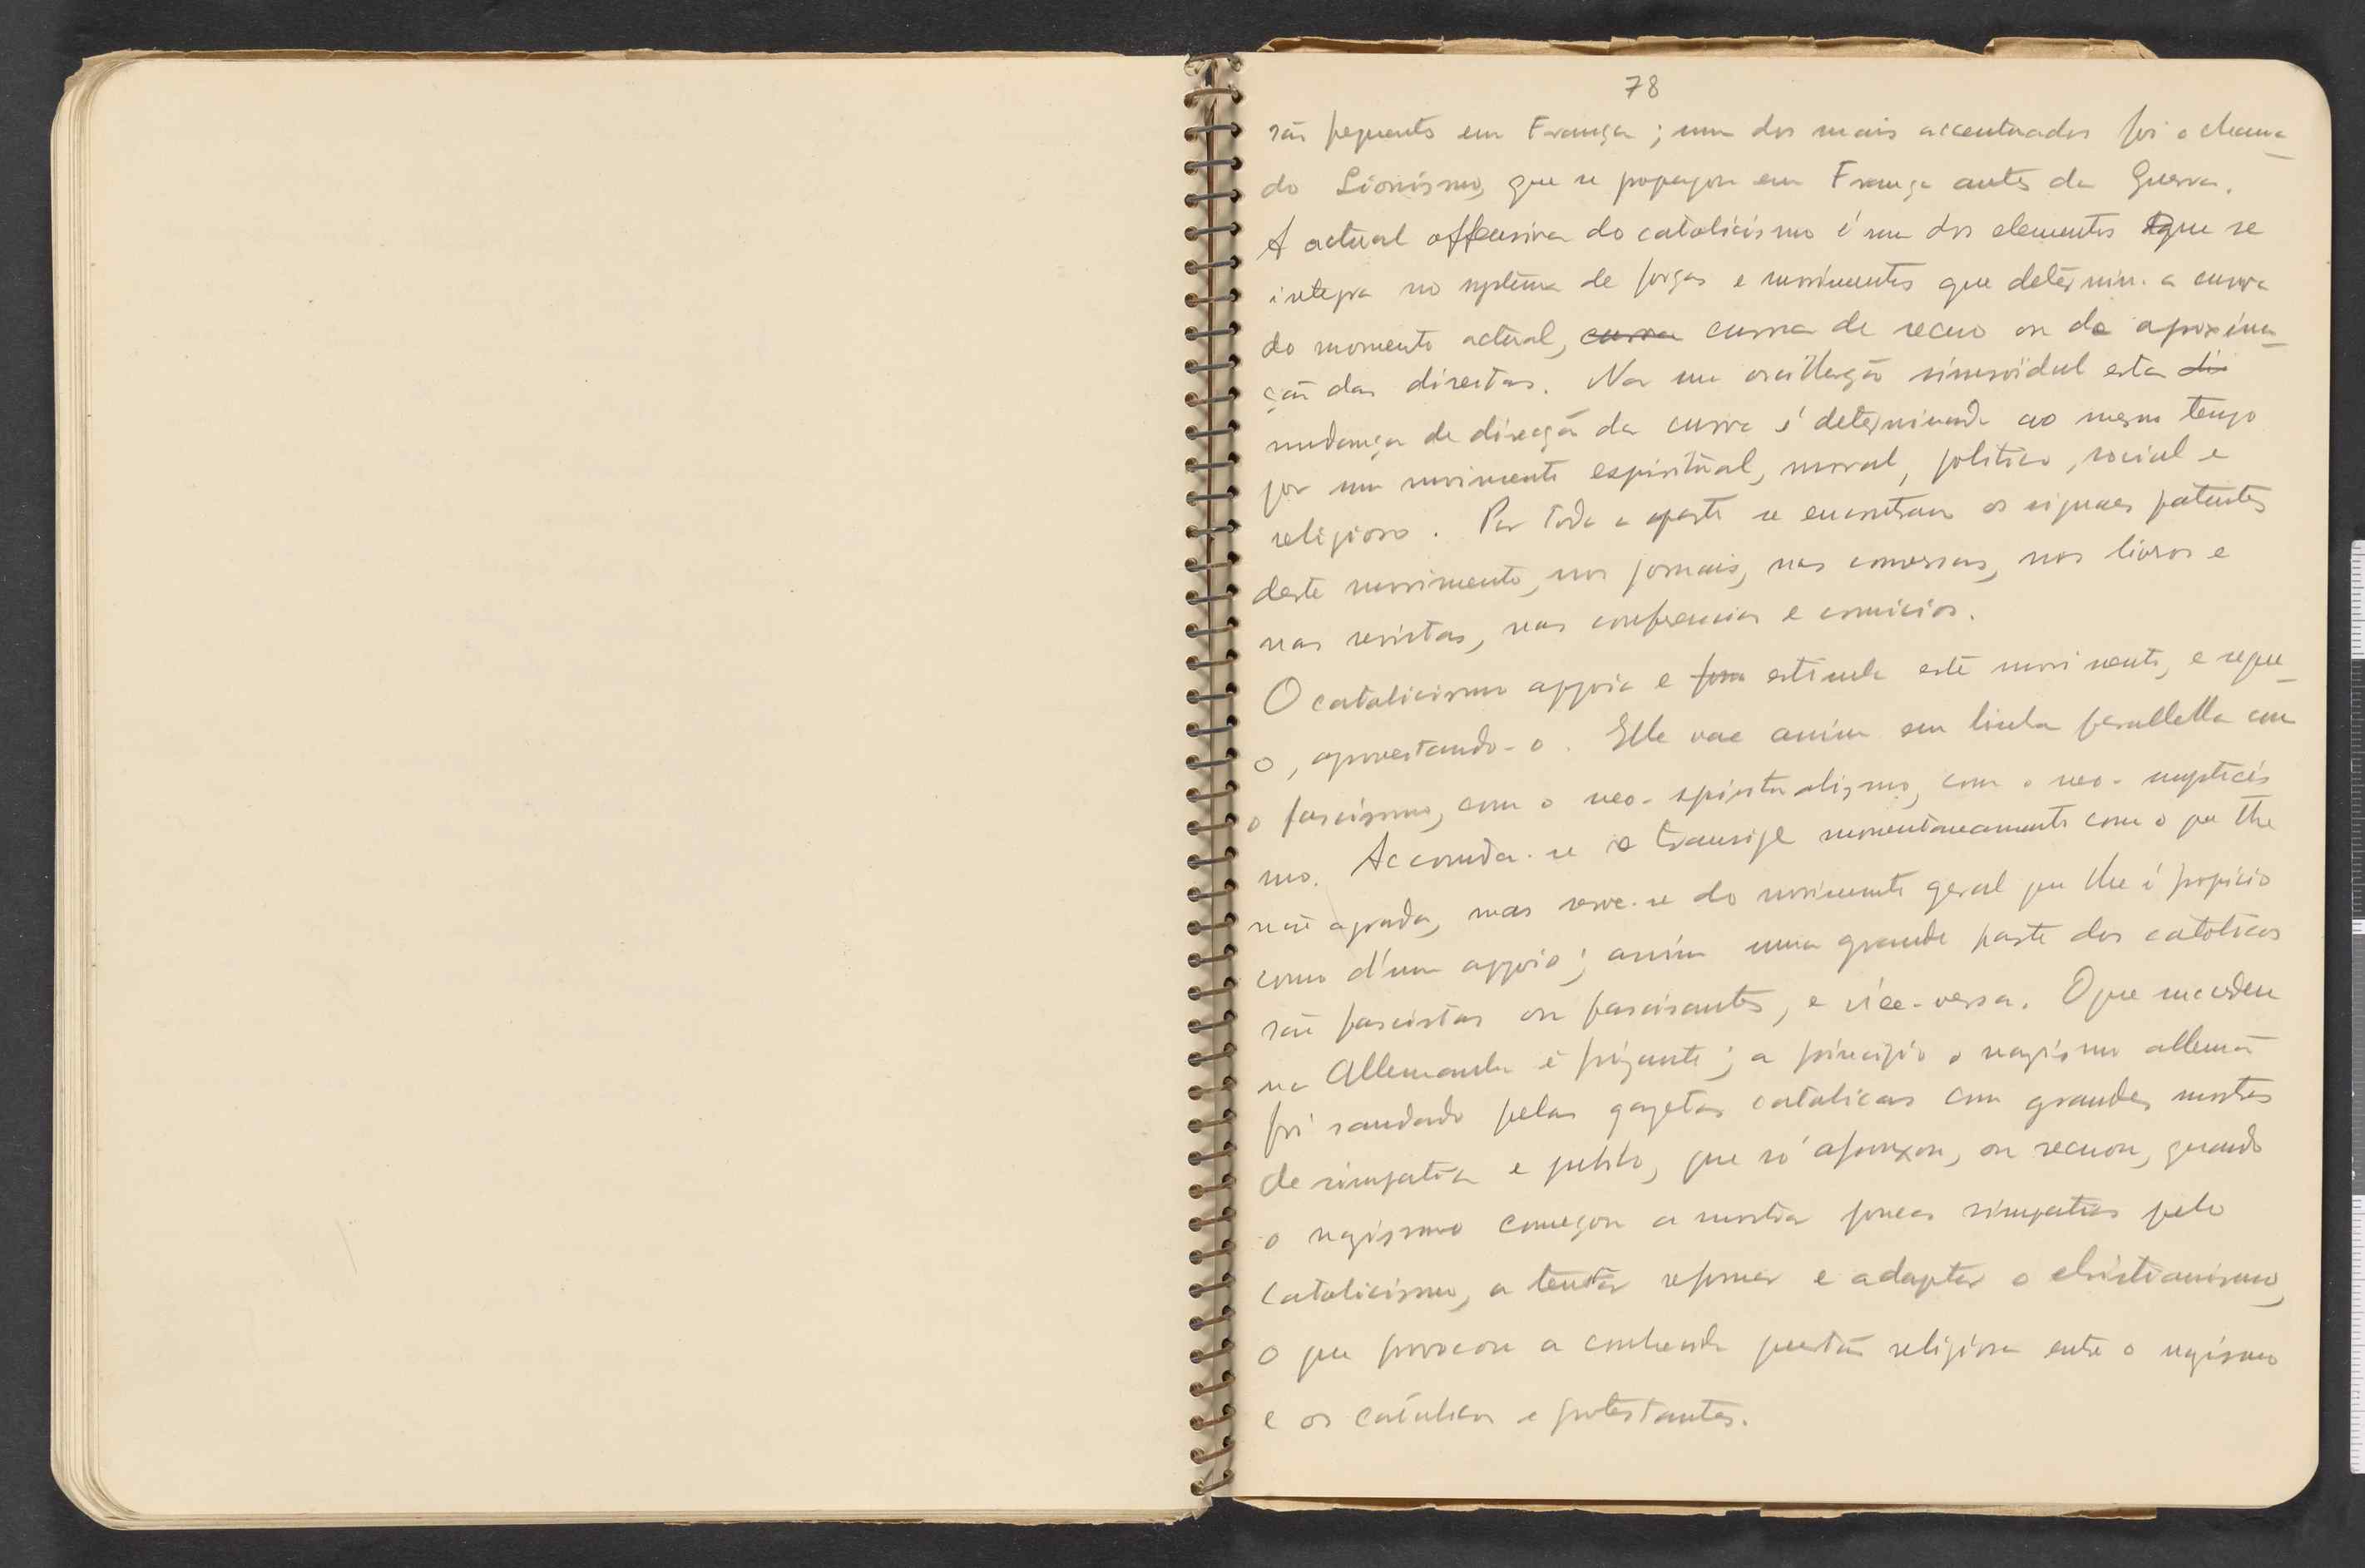 78
são frequentes em França; um dos mais accentuados foi o chama-
do Sionismo, que se propagou em França antes da Guerra.
A actual offensiva do catolicismo é um dos elementos que se
integra no systema de forças e movimentos que determin. a curva
do momento actual, curva curva de recuo ou de aproxima-
ção das direitas. Na sua oscillação sinusoidal esta di
mudança de direcção da curva é determinada ao mesmo tempo
por um movimento espiritual, moral, politico, social e
religioso. Por toda a aparte se encontram os signaes patentes
deste movimento, nos jornais, nas conversas, nos livros e
nas revistas, nas conferencias e comicios.
O catolicismo appoia e estimula este movimento, e segue-
o, aproveitando-o. Elle vae assim em linha parallella com
o fascismo, com o neo-spiritualismo, com o neo-mysticis
mo. Accomoda-se e transige momentaneamente com o que lhe
não agrada, mas serve-se do movimento geral que lhe é propicio
como d'um appoio; assim uma grande parte dos catolicos
são fascistas ou fascisantes, e vice-versa. O que succedeu
na Allemanha é frizante; a principio o nazismo allemã
foi saudado pelas gazetas catolicas com grandes mostras
de simpatia e jubilo, que só afrouxou, ou recuou, quando
o nazismo começou a mostrar poucas simpatias pelo
catolicismo, a tentar reformar e adaptar o christianismo,
o que provocou a conhecida questão religiosa entre o nazismo
e os catolicos e protestantes.